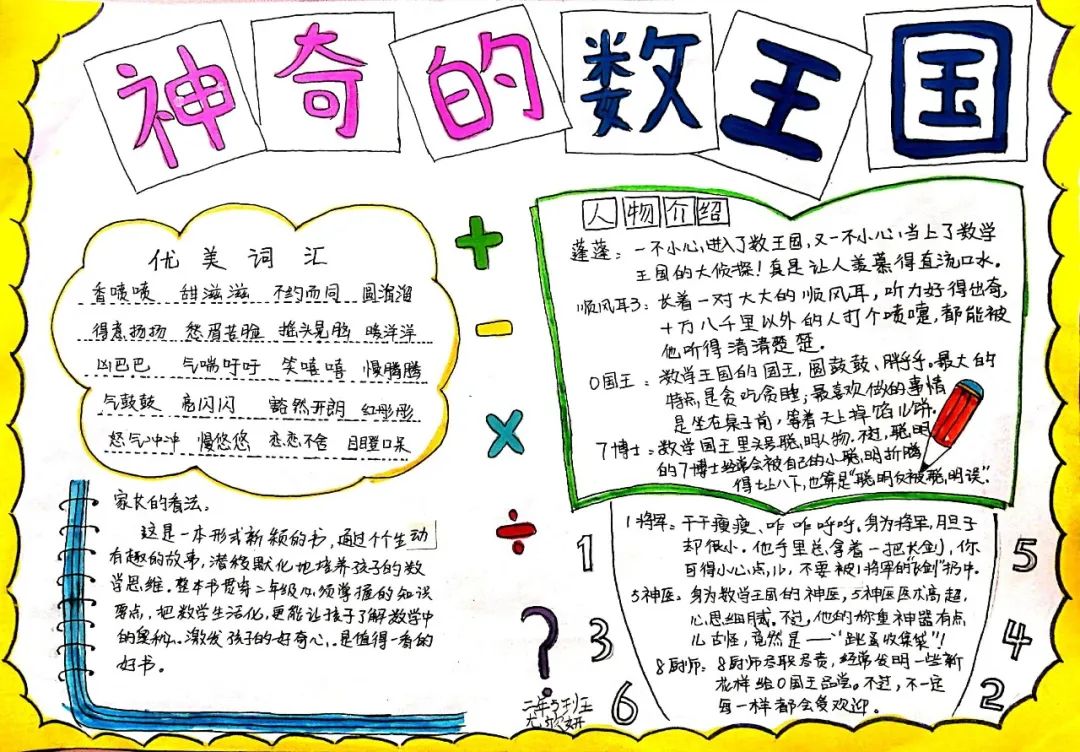 神奇的数王国
优美词汇
香喷喷 甜滋滋 不约而同 圆溜溜
得意扬扬 愁眉苦脸 摇头晃脑 暖洋洋
凶巴巴 气喘吁吁 笑嘻嘻 慢腾腾
气鼓鼓 亮闪闪 豁然开朗 红彤彤
怒气冲冲 慢悠悠 恋恋不舍 目瞪口呆
家长的看法:
这是一本形式新颖的书,通过个个生动
有趣的故事,潜移默化地培养孩子的数
学思维。整本书贯穿二年级必须掌握的知识
要点,把数学生活化,更能让孩子了解数学中
的奥秘。激发孩子的好奇心,是值得一看的
好书。
+
-
×
÷
?
人物介绍
蓬蓬:一不小心,进入了数王国,又一不小心,当上了数学
王国的大侦探!真是让人羡慕得直流口水。
顺风耳3:长着一对大大的顺风耳,听力好得出奇,
十万八千里以外的人打个喷嚏,都能被
他听得清清楚楚。
0国王:数学王国的国王,圆鼓鼓、胖乎乎。最大的
特点是贪吃贪睡,最喜欢做的事情
是坐在桌子前,等着天上掉馅儿饼。
7博士:数学国王里头号聪明人物。不过,聪明
的7博士经常会被自己的小聪明折腾
得七上八下,也算是“聪明反被聪明误”。
1将军:干干瘦瘦、咋咋呼呼。身为将军,胆子
却很小。他手里总拿着一把长剑,你
可得小心点儿,不要被1将军的“长剑”扔中。
5神医:身为数学王国的神医,5神医医术高超,
心思细腻。不过,他的称重神器有点
儿古怪,竟然是——“跳蚤收集袋”!
8厨师:8厨师尽职尽责,经常发明一些新
花样给0国王品尝。不过,不一定
每一样都会受欢迎。
1
3
6
5
4
2
二年5班